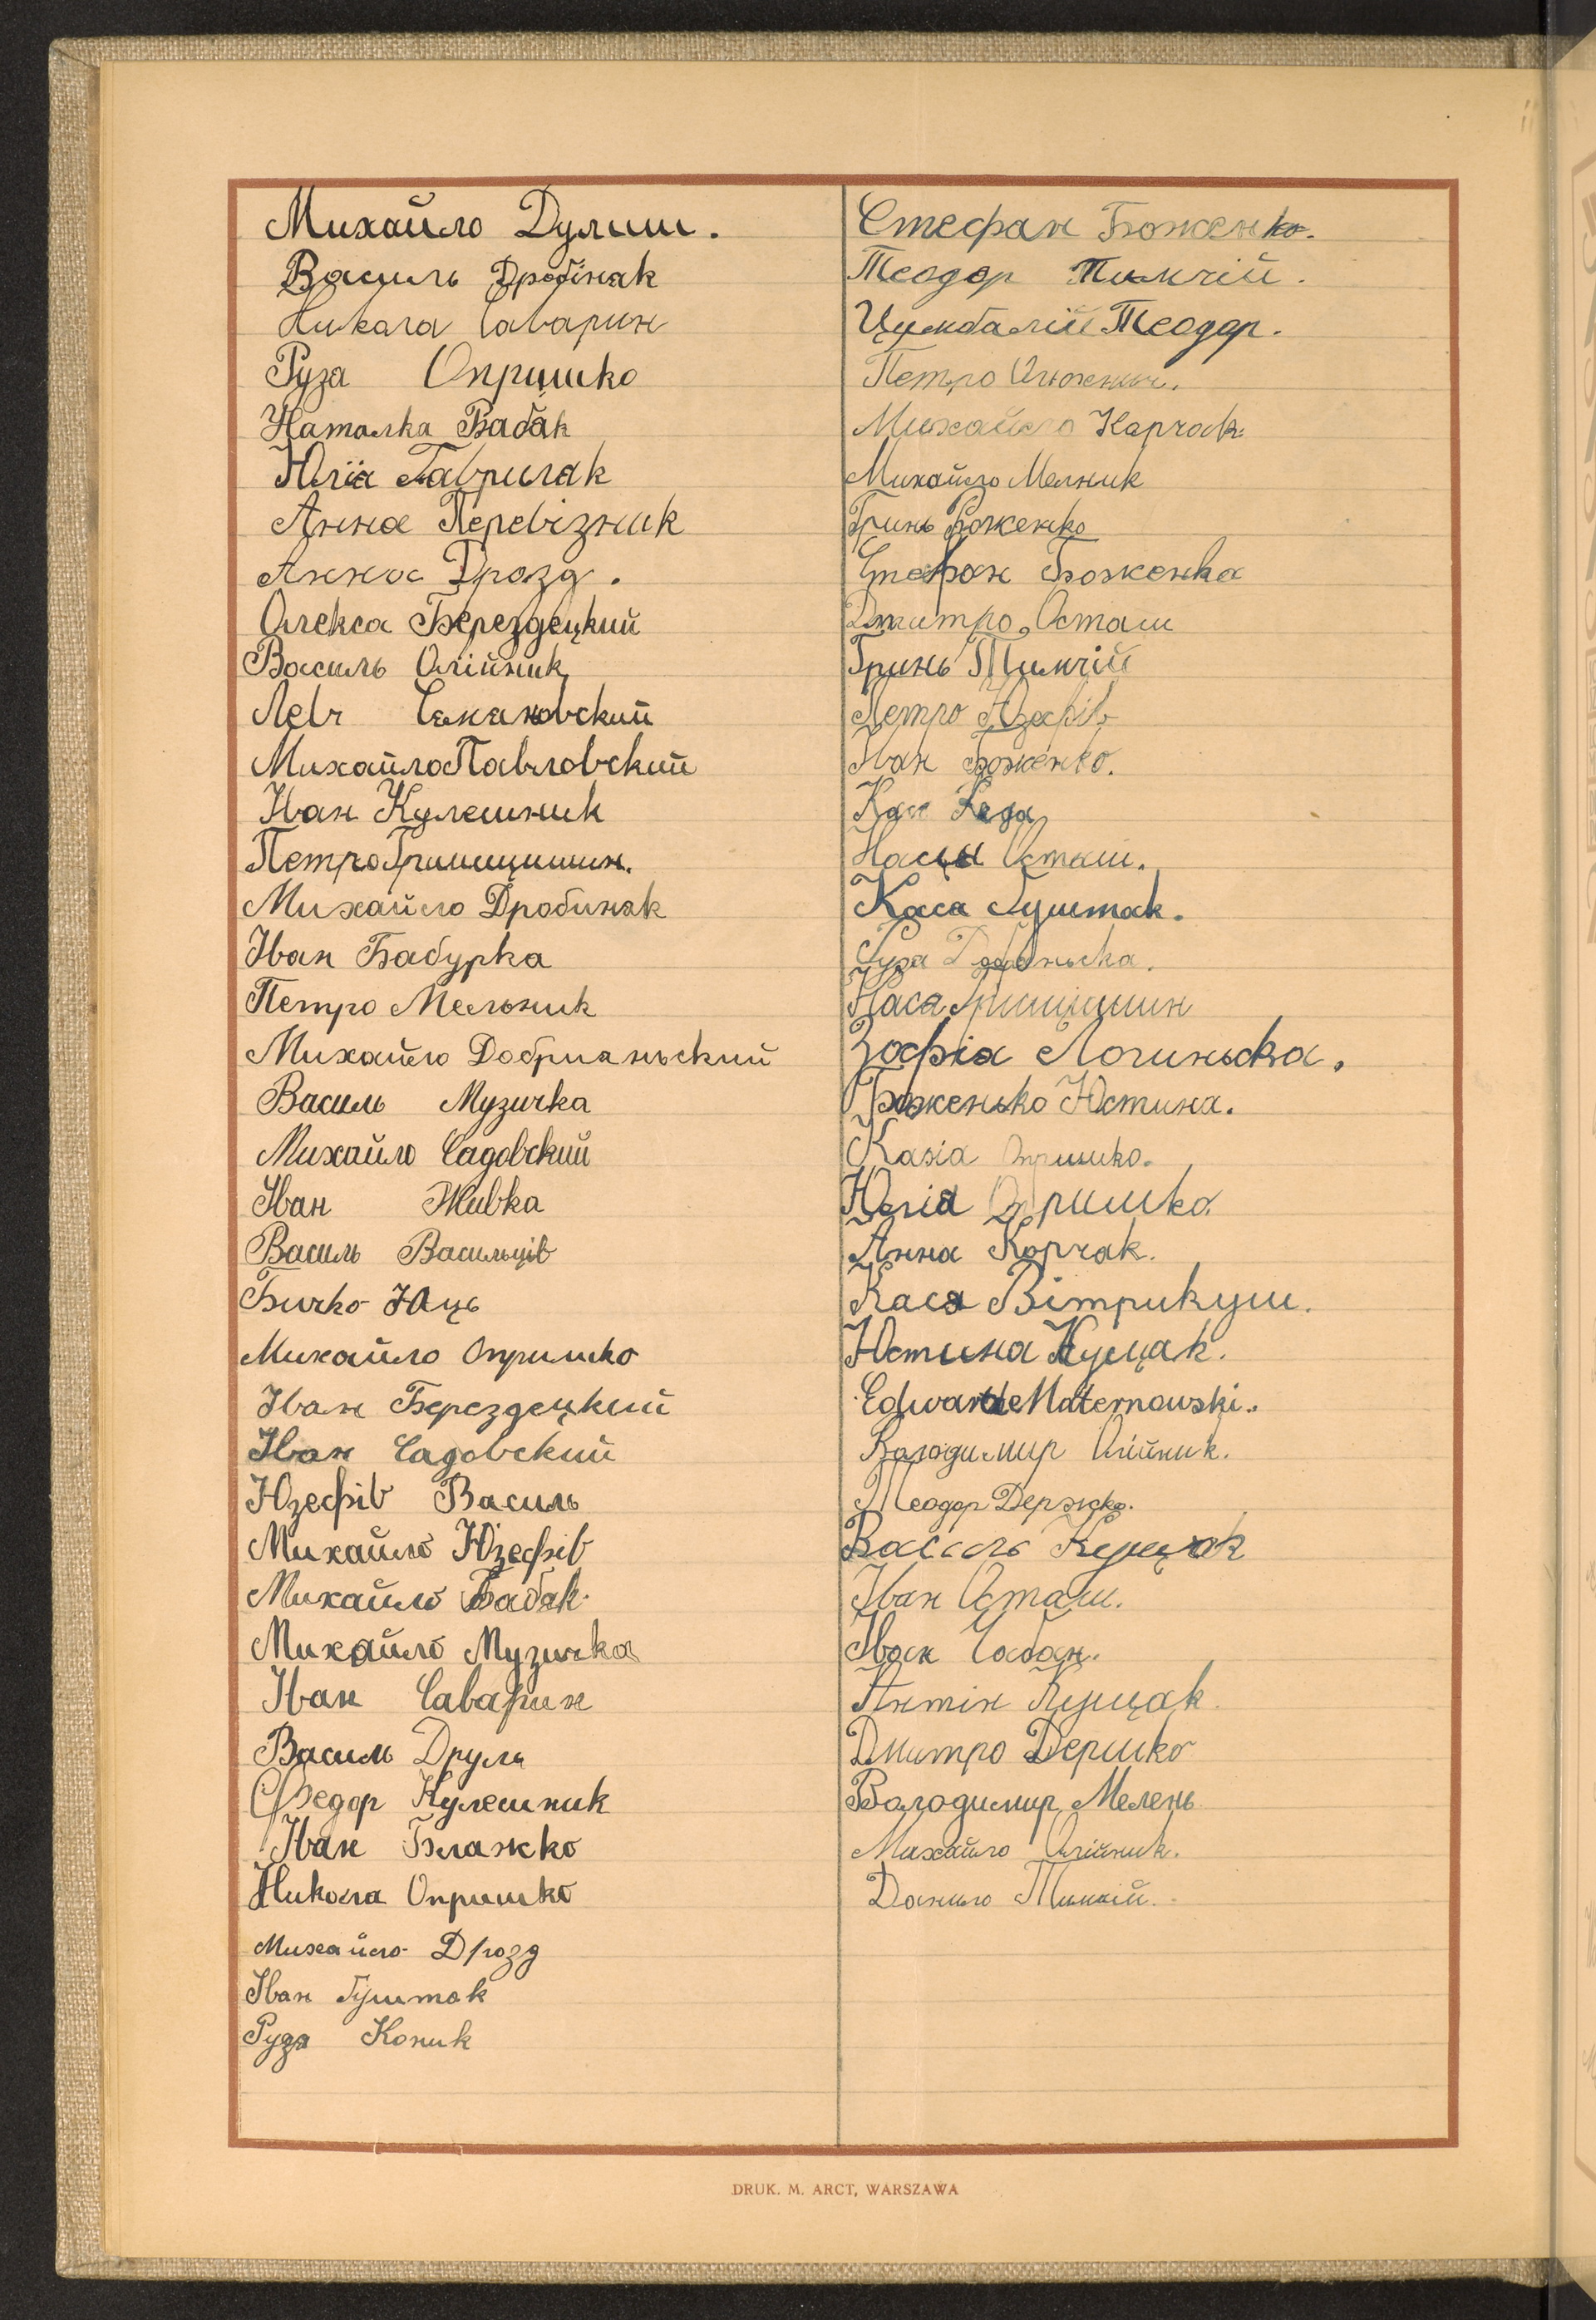 Михайло Дулиш.
Василь Дробінак
Никола Саварин
Руза Опришко
Наталка Бабак
Юлїа Гаврилак
Анна Перевізник
Анна Дрозд.
Олекса Берездецкий
Василь Олійник
Левг
Михайло Павловский
Іван Кулешник
Петро Грищишин.
Михайло Дробинак
Іван Бабурка
Петро Мельник
Михайло Добрианьский
Василь Музичка
Михайло Садовский
Іван Живка
Василь Васильців
Бичко Юць
Михайло Опришко
Іван Берездецкий
Іван Садовский
Юзефів Василь
Михайло Юзефів
Михайло Бабак.
Михайло Музичка
Іван Саварин
Василь Друль
Федор Кулешник
Іван Блажко
Никола Опришко
Михайло Дрозд
Іван Гуштак
Рудя Коник
Стефан Боженко.
Теодор Тимчій.
Цимбалій Теодор.
Петро
Михайло Карчак.
Михайло Мелник
Гринь Боженко
Стефан Боженка
Дмитро Осташ
Гринь Тимчій
Петро Юзефів
Іван Боженко.
Насьа Осташ.
Каса Гуштак.
Руза
Наса Грищишин
Зофіа Логиньска.
Боженько Юстина.
Касіа Опришко.
Юліа Опришко.
Анна Корчак.
Кася Вітрикуш.
Юстина Куцак.
Edward Maternowski.
Володимир Олійник.
Теодор Держко.
Василь Куцак
Іван Осташ.
Іван Чабан.
Антін Куцак.
Дмитро Дершко
Володимир Мелень
Михайло Олійник.
Данило Тимчій.
DRUK. M. ARCT, WARSZAWA